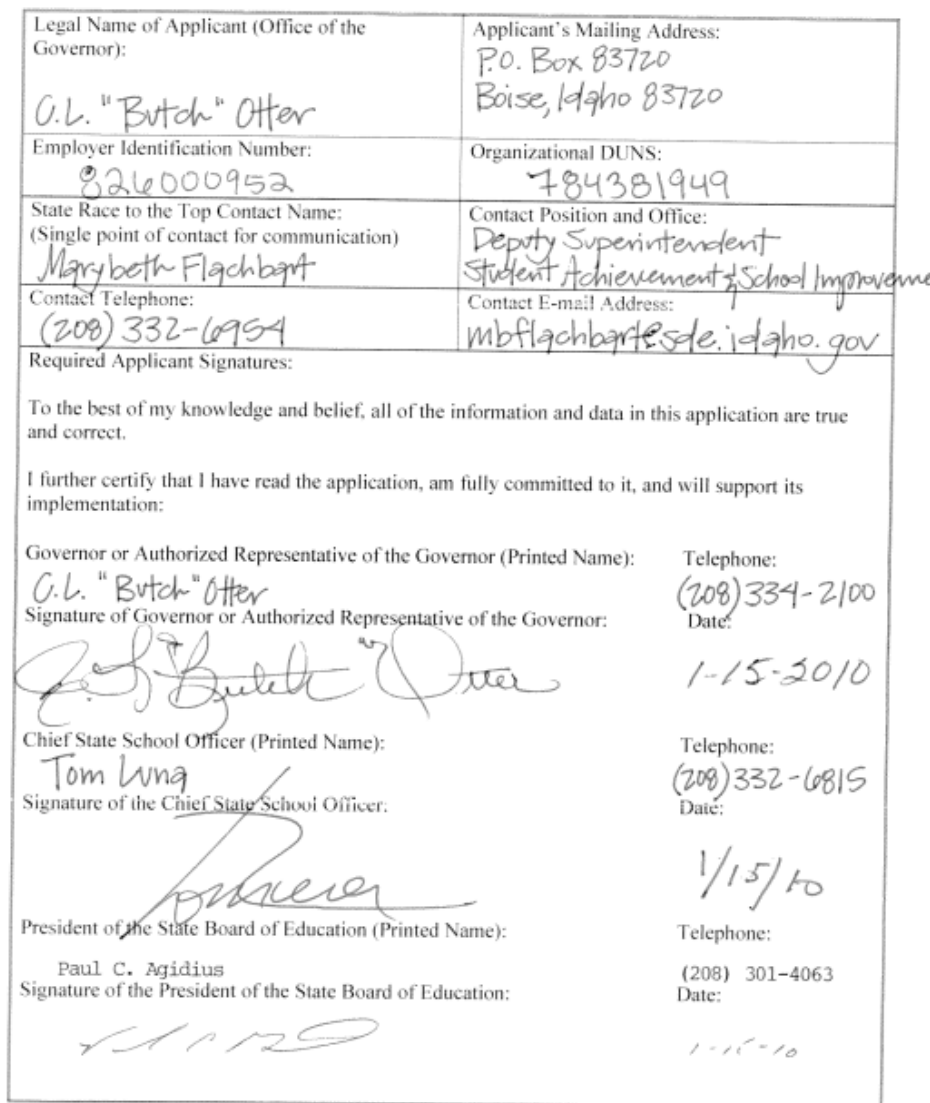 Legal Name of Applicant (Office of the
Governor):
C.L. "Butch" Otter
Applicant's Mailing Address:
P.O. Box 83720
Boise, Idaho 83720
Employer Identification Number:
826000952
Organizational DUNS:
784381949
State Race to the Top Contact Name:
(Single point of contact for communication)
Marybeth Flachbart
Contact Position and Office:
Deputy Superintendent
Student Achievement & School Improveme
Contact Telephone:
(208) 332-6954
Contact E-mail Address:
mbflachbart@sde.idaho.gov
Required Applicant Signatures:
To the best of my knowledge and belief, all of the information and data in this application are true
and correct.
I further certify that I have read the application, am fully committed to it, and will support its
implementation:
Governor or Authorized Representative of the Governor (Printed Name): Telephone:
C.L. "Butch" Otter (208) 334-2100
Signature of Governor or Authorized Representative of the Governor: Date:
"Butch" Otter 1-15-2010
Chief State School Officer (Printed Name): Telephone:
Tom Luna (208) 332-6815
Signature of the Chief State School Officer: Date:
1/15/10
President of the State Board of Education (Printed Name): Telephone:
Paul C. Agidius (208) 301-4063
Signature of the President of the State Board of Education: Date:
1-15-10